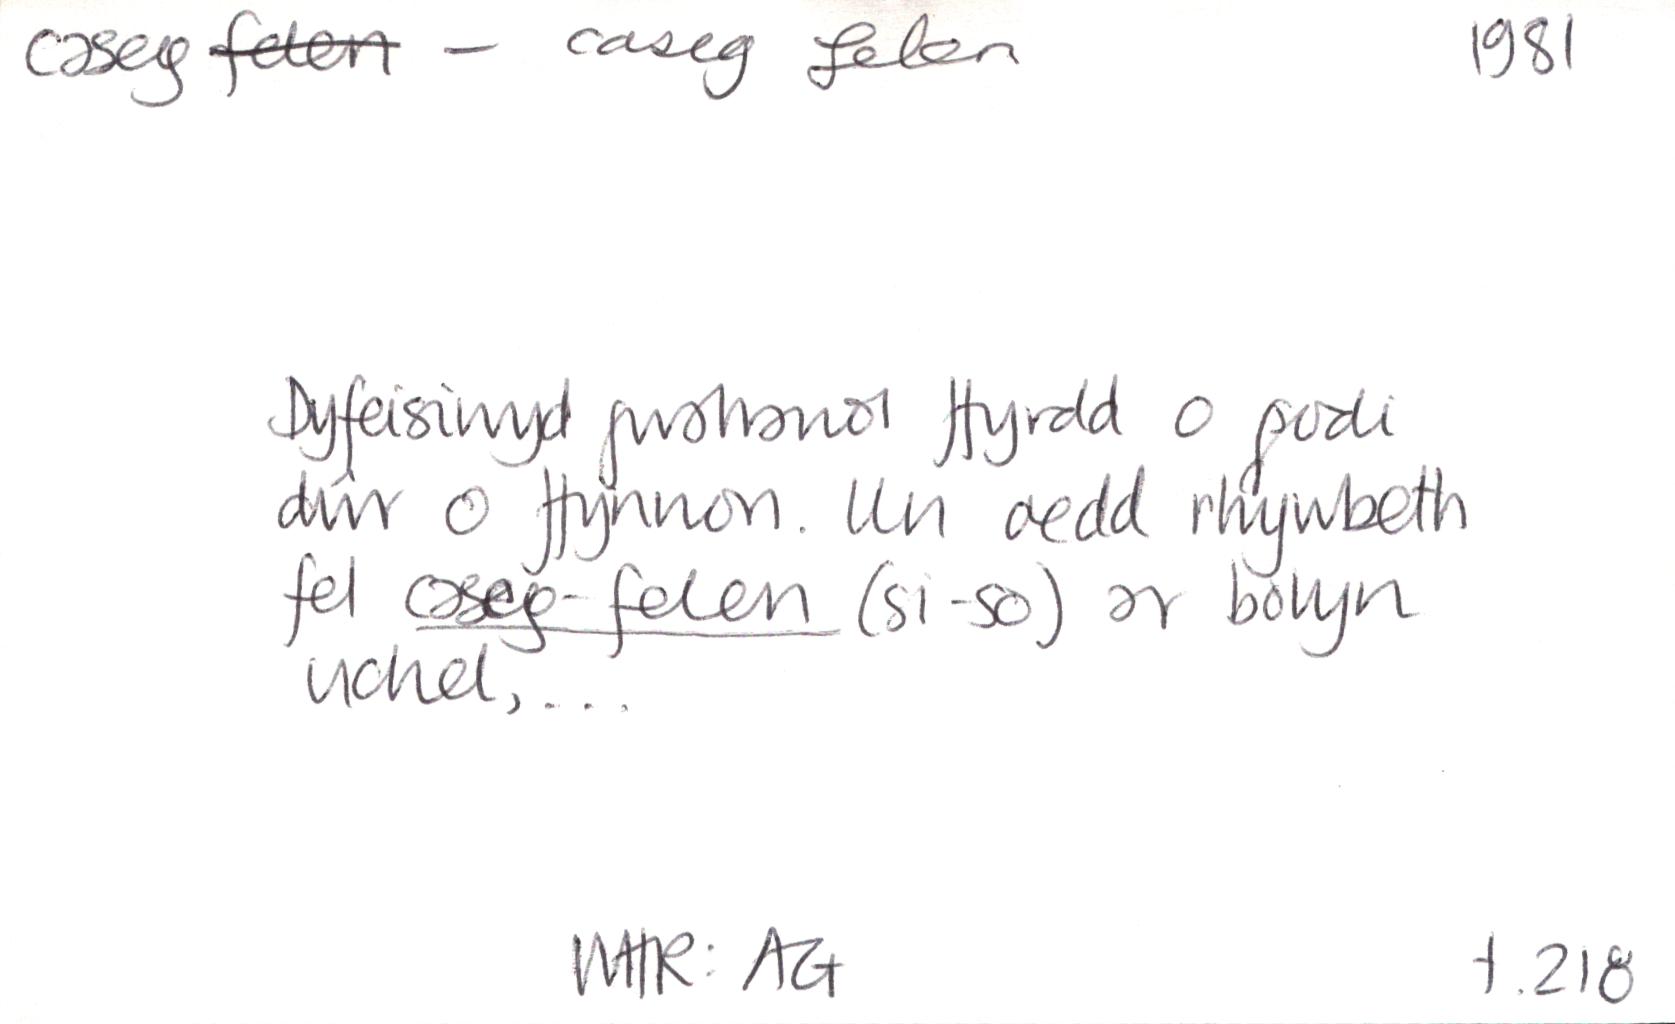 caseg ~~felen~~ – caseg felen 1981
Dyfeisiwyd gwahanol ffyrdd o godi
dŵr o ffynnon. Un oedd rhywbeth
fel caseg-felen (si-so) ar bolyn
uchel,...
WHR: AG t.218